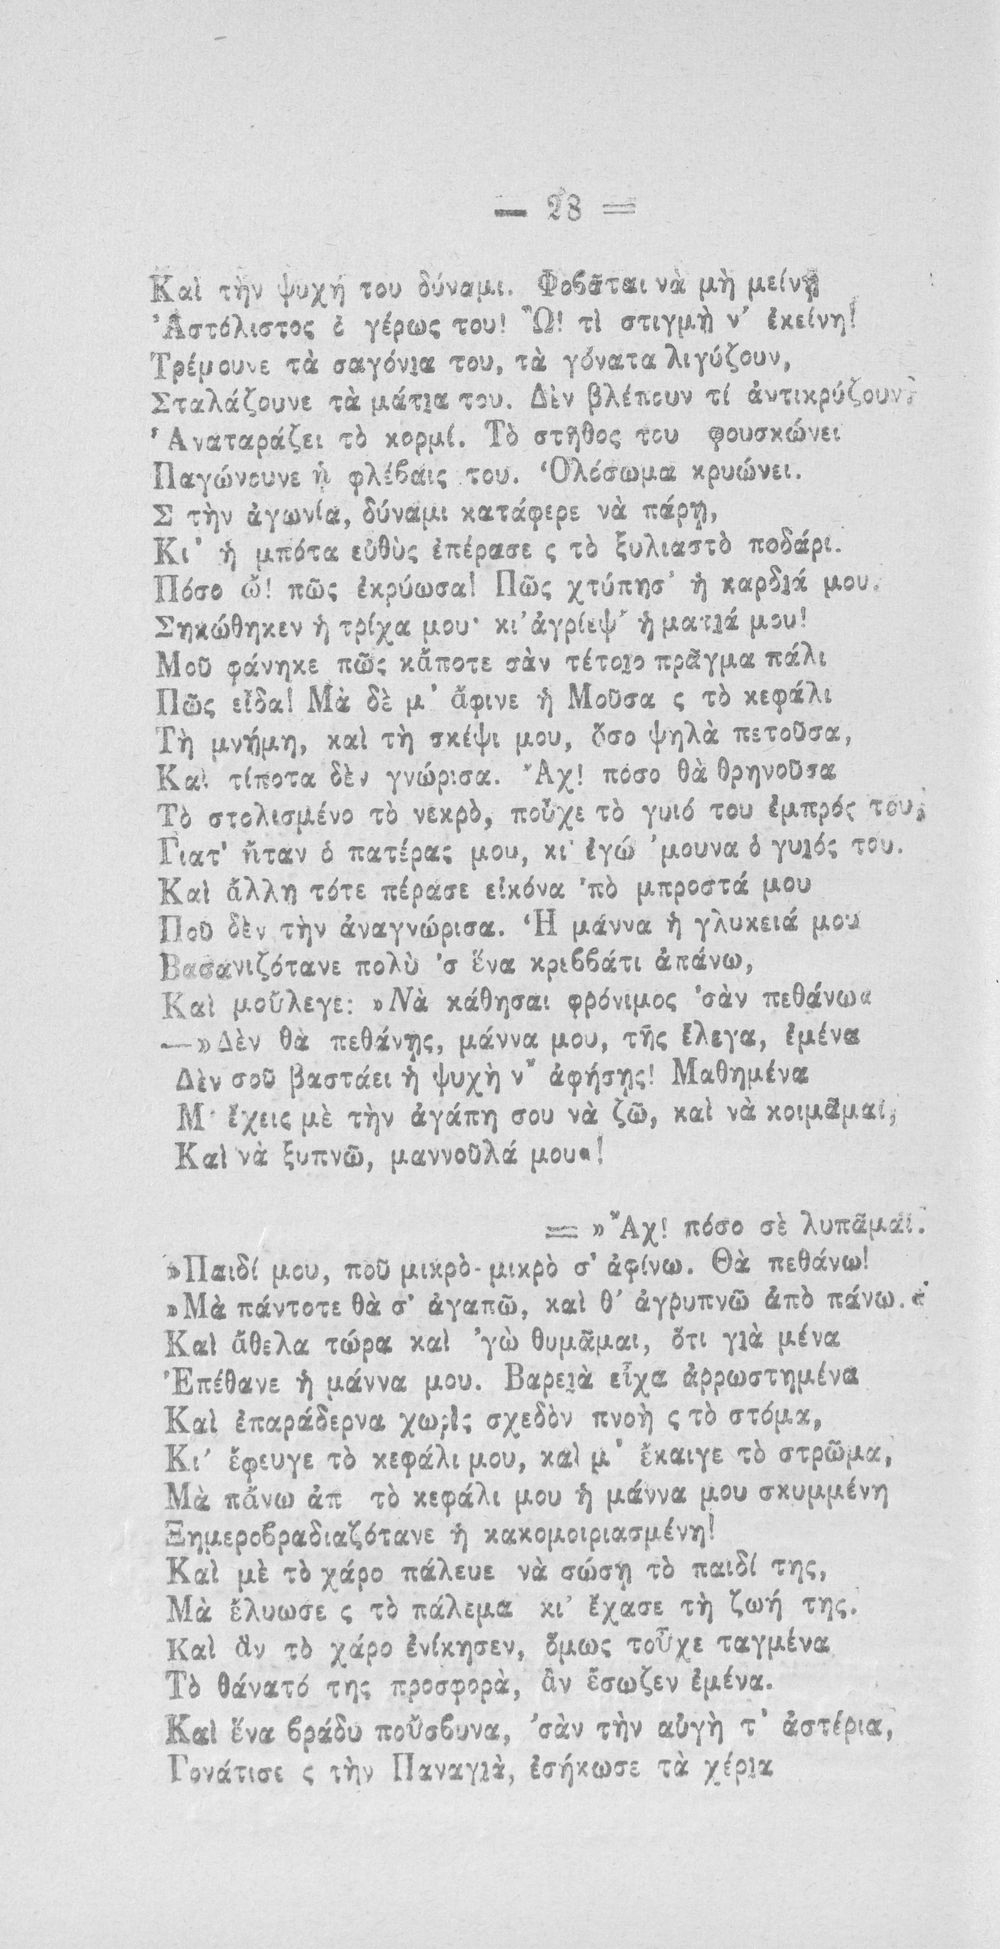 — 28 =
Καὶ τὴν ψυχή του δύναμι. Φοβᾶται νὰ μὴ μείνῃ
Ἀστόλιστος ὁ γέρως του! Ὤ! τὶ στιγμὴ ν' ἐκείνη!
Τρέμουνε τὰ σαγόνια του, τὰ γόνατα λιγύζουν,
Σταλάζουνε τὰ μάτια του. Δὲν βλέπουν τί ἀντικρύζουν.
Ἀναταράζει τὸ κορμί. Τὸ στῆθος του φουσκώνει
Παγώνουνε ᾑ φλέβαις του. Ὁλόσωμα κρυώνει.
Σ τὴν ἀγωνία, δύναμι κατάφερε νὰ πάρῃ,
Κι' ἡ μπότα εὐθὺς ἐπέρασε ς τὸ ξυλιαστὸ ποδάρι.
Πόσο ὤ! πῶς ἐκρύωσα! Πῶς χτύπησ' ἡ καρδιά μου.
Σηκώθηκεν ἡ τρίχα μου· κι' ἀγρίεψ' ἡ ματιά μου!
Μοῦ φάνηκε πῶς κἄποτε σὰν τέτοιο πρᾶγμα πάλι
Πῶς εἶδα! Μὰ δὲ μ' ἄφινε ἡ Μοῦσα ς τὸ κεφάλι
Τὴ μνήμη, καὶ τὴ σκέψι μου, ὅσο ψηλὰ πετοῦσα,
Καὶ τίποτα δὲν γνώρισα. Ἄχ! πόσο θὰ θρηνοῦσα
Τὸ στολισμένο τὸ νεκρὸ, ποὖχε τὸ γυιό του ἐμπρός του,
Γιατ' ἦταν ὁ πατέρας μου, κι' ἐγώ 'μουνα ὁ γυιός του.
Καὶ ἄλλη τότε πέρασε εἰκόνα 'πὸ μπροστά μου
Ποῦ δὲν τὴν ἀναγνώρισα. Ἡ μάννα ἡ γλυκειά μου
Βασανιζότανε πολὺ 'σ ἕνα κρεββάτι ἀπάνω,
Καὶ μοὔλεγε: »Νὰ κάθησαι φρόνιμος 'σὰν πεθάνω«
—»Δὲν θὰ πεθάνῃς, μάννα μου, τῆς ἔλεγα, ἐμένα
Δὲν σοῦ βαστάει ἡ ψυχὴ ν' ἀφήσῃς! Μαθημένα
Μ' ἔχεις μὲ τὴν ἀγάπη σου νὰ ζῶ, καὶ νὰ κοιμᾶμαι,
Καὶ νὰ ξυπνῶ, μαννοῦλά μου«!
= »Ἄχ! πόσο σὲ λυπᾶμαι.
»Παιδί μου, ποῦ μικρὸ-μικρὸ σ' ἀφίνω. Θὰ πεθάνω!
»Μὰ πάντοτε θὰ σ' ἀγαπῶ, καὶ θ' ἀγρυπνῶ ἀπὸ πάνω.«
Καὶ ἄθελα τώρα καὶ 'γὼ θυμᾶμαι, ὅτι γιὰ μένα
Ἐπέθανε ἡ μάννα μου. Βαρειὰ εἶχα ἀρρωστημένα
Καὶ ἐπαράδερνα χωρὶς σχεδὸν πνοὴ ς τὸ στόμα,
Κι' ἔφευγε τὸ κεφάλι μου, καὶ μ' ἔκαιγε τὸ στρῶμα,
Μὰ πάνω ἀπ τὸ κεφάλι μου ἡ μάννα μου σκυμμένη
Ξημεροβραδιαζότανε ἡ κακομοιριασμένη!
Καὶ μὲ τὸ χάρο πάλευε νὰ σώσῃ τὸ παιδί της,
Μὰ ἔλυωσε ς τὸ πάλεμα κι' ἔχασε τὴ ζωή της.
Καὶ ἂν τὸ χάρο ἐνίκησεν, ὅμως τοὖχε ταγμένα
Τὸ θάνατό της προσφορὰ, ἂν ἔσωζεν ἐμένα.
Καὶ ἕνα βράδυ ποὔσβυνα, 'σὰν τὴν αὐγὴ τ' ἀστέρια,
Γονάτισε ς τὴν Παναγιὰ, ἐσήκωσε τὰ χέρια